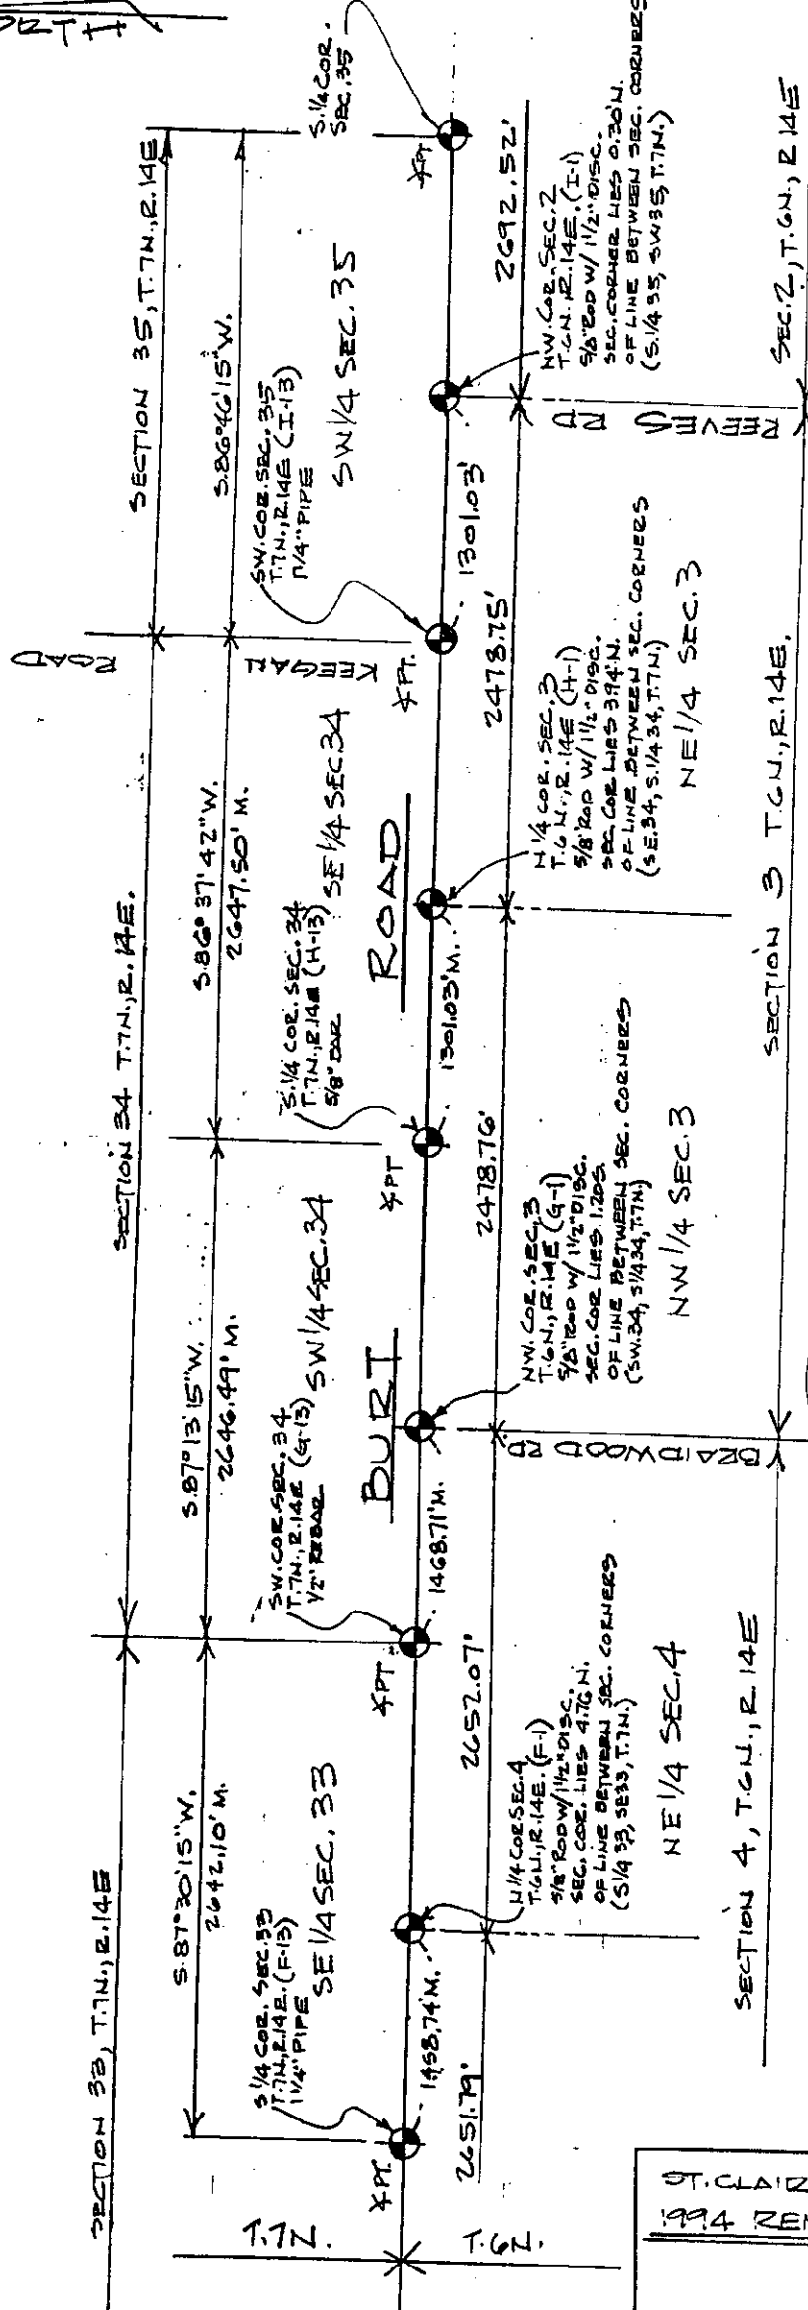 SECTION 33, T.7N., R.14E
SECTION 34 T.7N., R.14E.
SECTION 35, T.7N., R.14E
S.87°30'15"W.
2642.10' M.
S.87°13'15"W.
2646.49' M.
S.86°37'42"W.
2647.50' M.
S.86°46'15"W.
S 1/4 COR. SEC. 33
T.7N., R.14E. (F-13)
1 1/4" PIPE
SE 1/4 SEC. 33
SW. COR. SEC. 34
T.7N., R.14E (G-13)
1/2" REBAR
SW 1/4 SEC. 34
S. 1/4 COR. SEC. 34
T.7N., R.14E (H-13)
5/8" BAR
SE 1/4 SEC. 34
KEEGAN
ROAD
SW. COR. SEC. 35
T.7N., R.14E (I-13)
1 1/4" PIPE
SW 1/4 SEC. 35
S. 1/4 COR.
SEC. 35
BURT
ROAD
∡PT.
∡PT
∡PT
∡PT.
∡PT
T.7N.
T.6N.
1458.74' M.
1468.71' M.
1301.03' M.
1301.03'
2651.79'
2652.07'
2478.76'
2478.75'
2692.52'
N 1/4 COR SEC. 4
T.6N., R.14E. (F-1)
5/8" ROD W/ 1 1/2" DISC.
SEC. COR. LIES 4.76 N.
OF LINE BETWEEN SEC. CORNERS
(S 1/4 33, SE33, T.7N.)
NE 1/4 SEC. 4
NW. COR. SEC. 3
T.6N., R.14E (G-1)
5/8" ROD W/ 1 1/2" DISC.
SEC. COR LIES 1.20S.
OF LINE BETWEEN SEC. CORNERS
(SW. 34, S 1/4 34, T.7N)
NW 1/4 SEC. 3
N 1/4 COR. SEC. 3
T.6 N., R.14E (H-1)
5/8" ROD W/ 1 1/2" DISC.
SEC. COR LIES 3.94' N.
OF LINE BETWEEN SEC. CORNERS
(SE. 34, S. 1/4 34, T.7N.)
NE 1/4 SEC. 3
NW. COR. SEC. 2
T.6N., R.14E. (I-1)
5/8" ROD W/ 1 1/2" DISC.
SEC. CORNER LIES 0.30' N.
OF LINE BETWEEN SEC. CORNERS
(S. 1/4 35, SW35, T.7N.)
BRAIDWOOD RD
REEVES RD
SECTION 4, T.6N., R.14E
SECTION 3 T.6N., R.14E.
SEC. 2, T.6N., R.14E
ST. CLAIR
1994